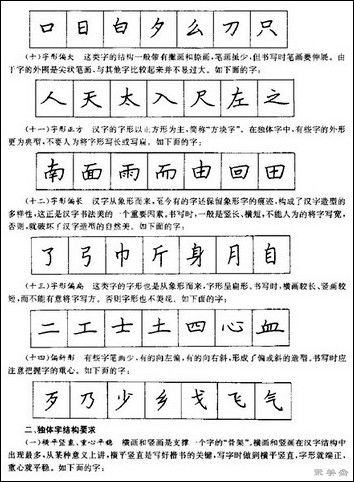 口 日 白 夕 么 刀 只
(十)字形偏大 这类字的结构一般带有撇画和捺画,笔画虽少,但书写时笔画要伸展。由
于字的外围是尖状笔画,与其他字比较起来并不显过大。如下面的字:
人 天 太 入 尺 左 之
(十一)字形正方 汉字的字形以正方形为主,简称“方块字”。在独体字中,有些字的外形
更为典型,不要人为将字形写长或写扁。如下面的字:
南 面 雨 而 由 回 田
(十二)字形偏长 汉字从象形而来,至今有的字还保留象形字的痕迹,构成了汉字造型的
多样性,这正是汉字书法美的一个重要因素。书写时,一般是竖长、横短,不能人为的将字写宽,
否则,就破坏了汉字造型的自然美。如下面的字:
了 弓 巾 斤 身 月 自
(十三)字形偏扁 这类字的字形也是从象形而来,字形呈扁形。书写时,横画较长、竖画较
短,而不能有意将字写方。否则字形也不美观。如下面的字:
二 工 士 土 四 心 血
(十四)偏斜形 有些字笔画少,有的向左偏,有的向右斜,形成了偏或斜的造型。书写时应
注意把握字的重心。如下面的字:
歹 乃 少 乡 戈 飞 气
二、独体字结构要求
(一)横平竖直、重心平稳 横画和竖画是支撑一个字的“骨架”。横画和竖画在汉字结构中
出现最多,从某种意义上讲,横平竖直是写好楷书的关键,写字时做到横平竖直,字形就端正,
重心就平稳。如下面的字: